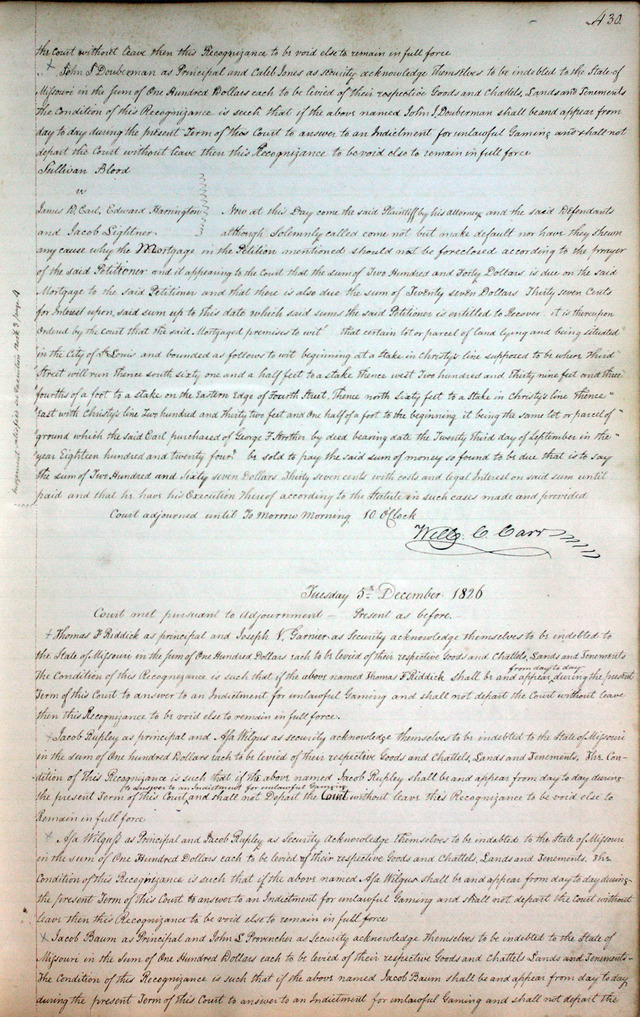 430
the Court without leave then this Recognizance to be void else to remain in full force
+ John S Douberman as Principal and Caleb Jones as security acknowledge themselves to be indebted to the State of
Missouri in the sum of One Hundred Dollars each to be levied of their respective Goods and Chattels, Lands and Tenements
The Condition of this Recognizance is such that if the above named John S Douberman shall be and appear from
day to day during the present Term of this Court to answer to an Indictment for unlawful Gaming and shall not
depart the Court without leave then this Recognizance to be void else to remain in full force
Sullivan Blood
vs
James W. Earl, Edward Harrington
and Jacob Lightner
Now at this Day come the said Plaintiff by his attorney and the said Defendants
although solemnly called come not but make default nor have they shewn
any cause why the Mortgage in the Petition mentioned should not be foreclosed according to the prayer
of the said Petitioner and it appearing to the Court that the sum of Two Hundred and Forty Dollars is due on the said
Mortgage to the said Petitioner and that there is also due the sum of Twenty seven Dollars Thirty seven Cents
for Interest upon said sum up to this date which said sums the said Petitioner is entitled to Recover it is thereupon
Ordered by the Court that the said Mortgaged premises to wit that certain lot or parcel of land lying and being situated
in the City of St Louis and bounded as follows to wit beginning at a stake in Christy's line supposed to be where Third
Street will run thence south sixty one and a half feet to a stake thence west Two hundred and Thirty nine feet and three
fourths of a foot to a stake on the Eastern Edge of Fourth Street, Thence north Sixty feet to a Stake in Christy's line Thence
East with Christy's line Two hundred and thirty two feet and One half of a foot to the beginning it being the same lot or parcel of
ground which the said Earl purchased of George F. Strother by deed bearing date the Twenty Third day of September in the
year Eighteen hundred and twenty four be sold to pay the said sum of money so found to be due that is to say
the sum of Two Hundred and Sixty seven Dollars Thirty seven cents with costs and legal Interest on said sum until
paid and that he have his Execution Thereof according to the Statute in such cases made and provided
Court adjourned until To Morrow Morning 10 OClock
Will. C. Carr
Tuesday 5th December 1826
Court met pursuant to Adjournment — Present as before. —
+ Thomas F Riddick as principal and Joseph V. Garnier as Security acknowledge themselves to be indebted to
the State of Missouri in the sum of One Hundred Dollars each to be levied of their respective Goods and Chattels, Lands and Tenements
from day to day
The Condition of this Recognizance is such that if the above named Thomas F Riddick shall be and appear during the present
Term of this Court to answer to an Indictment for unlawful Gaming and shall not depart the Court without leave
then this Recognizance to be void else to remain in full force.
+ Jacob Rupley as principal and Asa Wilgus as security acknowledge themselves to be indebted to the State of Missouri
in the sum of One hundred Dollars each to be levied of their respective Goods and Chattels, Lands and Tenements, The Con-
dition of this Recognizance is such that if the above named Jacob Rupley shall be and appear from day to day during
to Answer to an Indictment for unlawful Gaming
the present Term of this Court and shall not Depart the Court without leave this Recognizance to be void else to
Remain in full force
+ Asa Wilguss as Principal and Jacob Rupley as Security Acknowledge themselves to be indebted to the State of Missouri
in the sum of One Hundred Dollars each to be levied of their respective Goods and Chattels, Lands and Tenements. The
Condition of this Recognizance is such that if the above named Asa Wilgus shall be and appear from day to day during
the present Term of this Court to answer to an Indictment for unlawful Gaming and shall not depart the Court without
leave then this Recognizance to be void else to remain in full force
+ Jacob Baum as Principal and John L Provencher as Security acknowledge Themselves to be indebted to the State of
Missouri in the Sum of One Hundred Dollars each to be levied of their respective Goods and Chattels Lands and Tenements-
The Condition of this Recognizance is such that if the above named Jacob Baum shall be and appear from day to day
during the present Term of this Court to answer to an Indictment for unlawful Gaming and shall not depart the